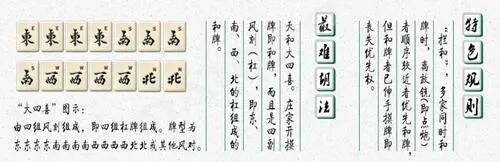 特色规则
“拦和”,多家同时和
牌时,离放铳(即点炮)
者顺序较近者优先和牌,
但和牌者已伸手摸牌即
丧失优先权。
最难胡法
天和大四喜。庄家开摸
牌即和牌,而且是四副
风刻(杠),即东、
南、西、北的杠组成的
和牌。
東東東東南南南
南西西西西北北
“大四喜”图示:
由四组风刻组成,即四组杠牌组成。牌型为
东东东东南南南南西西西西北北或其他风对。